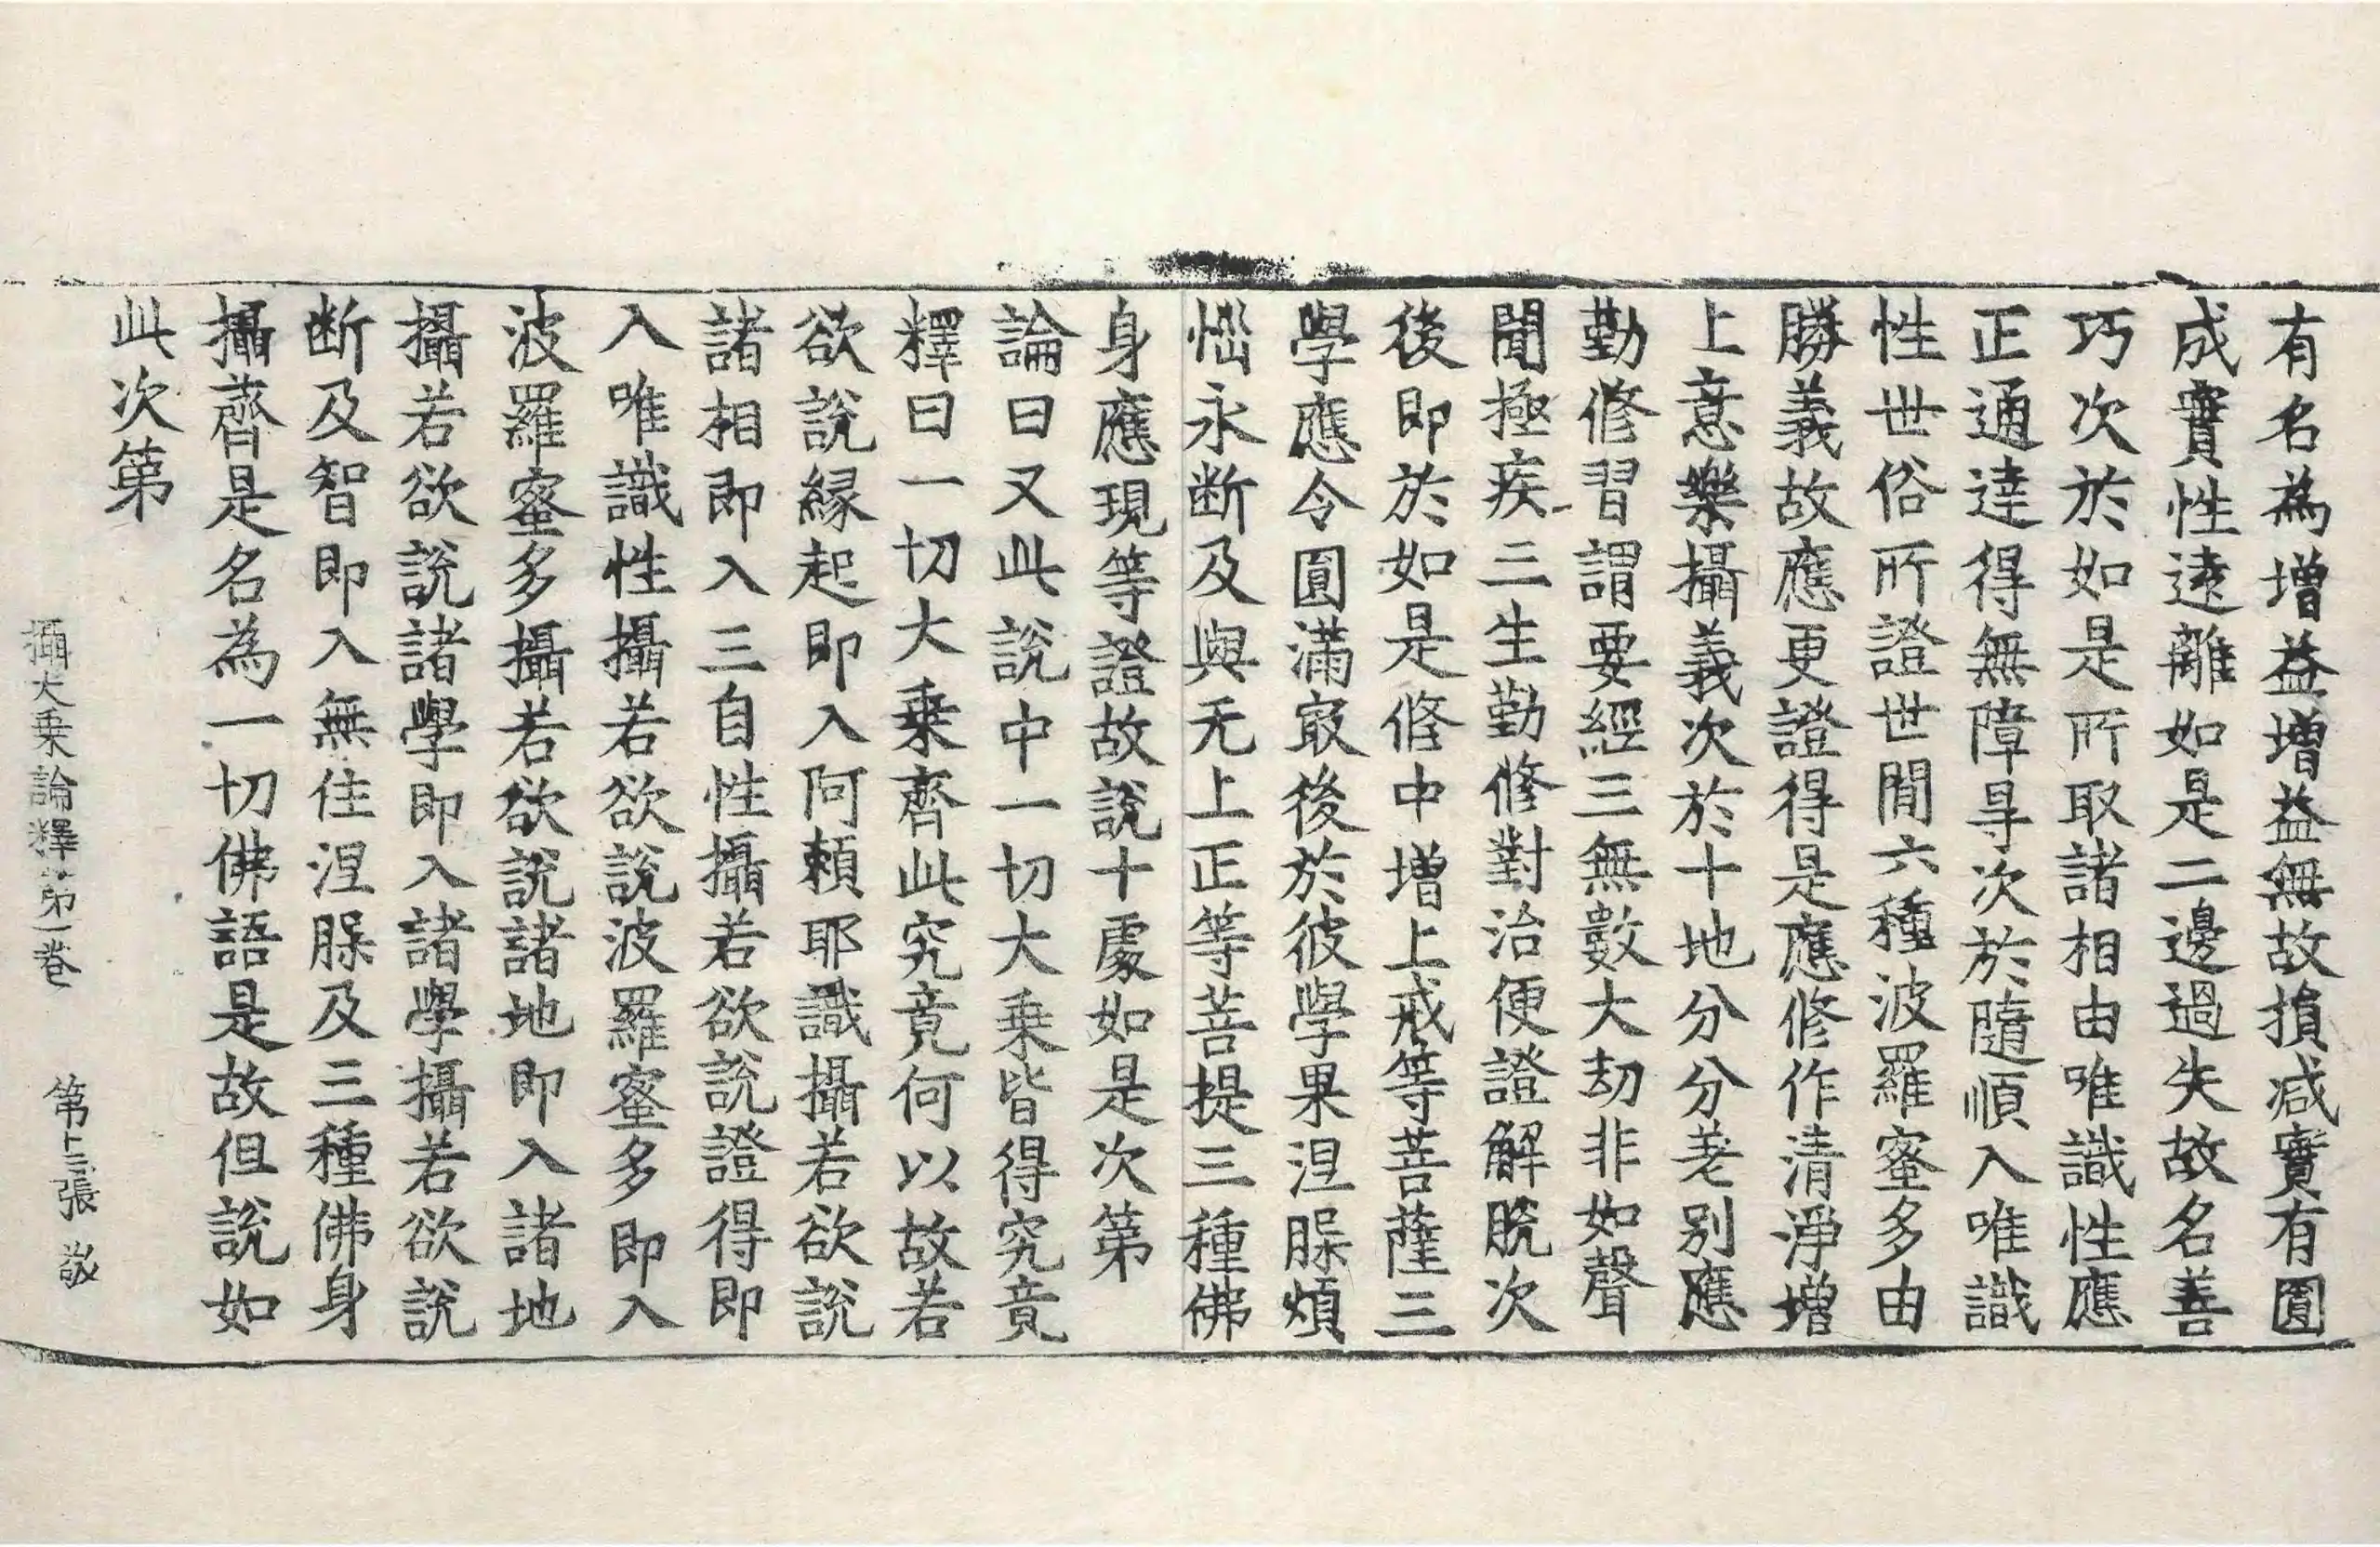 有名為增益增益無故損減實有圓
成實性遠離如是二邊過失故名善
巧次於如是所取諸相由唯識性應
正通達得無障㝵次於隨順入唯識
性世俗所證世間六種波羅蜜多由
勝義故應更證得是應修作清淨增
上意樂攝義次於十地分分差別應
勤修習謂要經三無數大劫非如聲
聞極疾三生勤修對治便證解脫次
後即於如是修中增上戒等菩薩三
學應令圓滿㝡後於彼學果涅脲煩
惱永断及與无上正等菩提三種佛
身應現等證故說十處如是次第
論曰又此說中一切大乗皆得究竟
釋曰一切大乗齊此究竟何以故若
欲說緣起即入阿賴耶識攝若欲說
諸相即入三自性攝若欲說證得即
入唯識性攝若欲說波羅蜜多即入
波羅蜜多攝若欲說諸地即入諸地
攝若欲說諸學即入諸學攝若欲說
断及智即入無住涅脲及三種佛身
攝齊是名為一切佛語是故但說如
此次第
攝大乗論釋第一卷 第十三張 敬